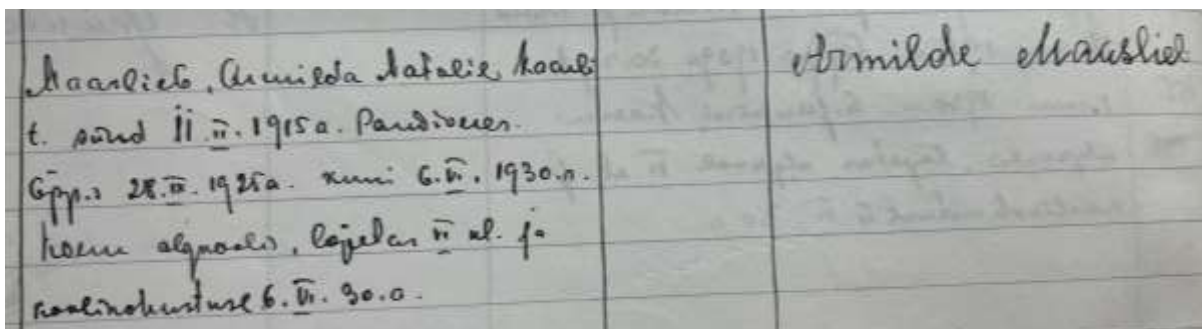 Maaslieb, Armilda Natalie Kaarli
t. sünd 11.II.1915 a. Pandiveres.
Õpp.: 28.IX.1925 a. kuni 6.VI.1930.a.
koolu algkoolis, lõpetas VI kl. ja
koolikohustuse 6.VI.30.a.
Armilde Maaslieb